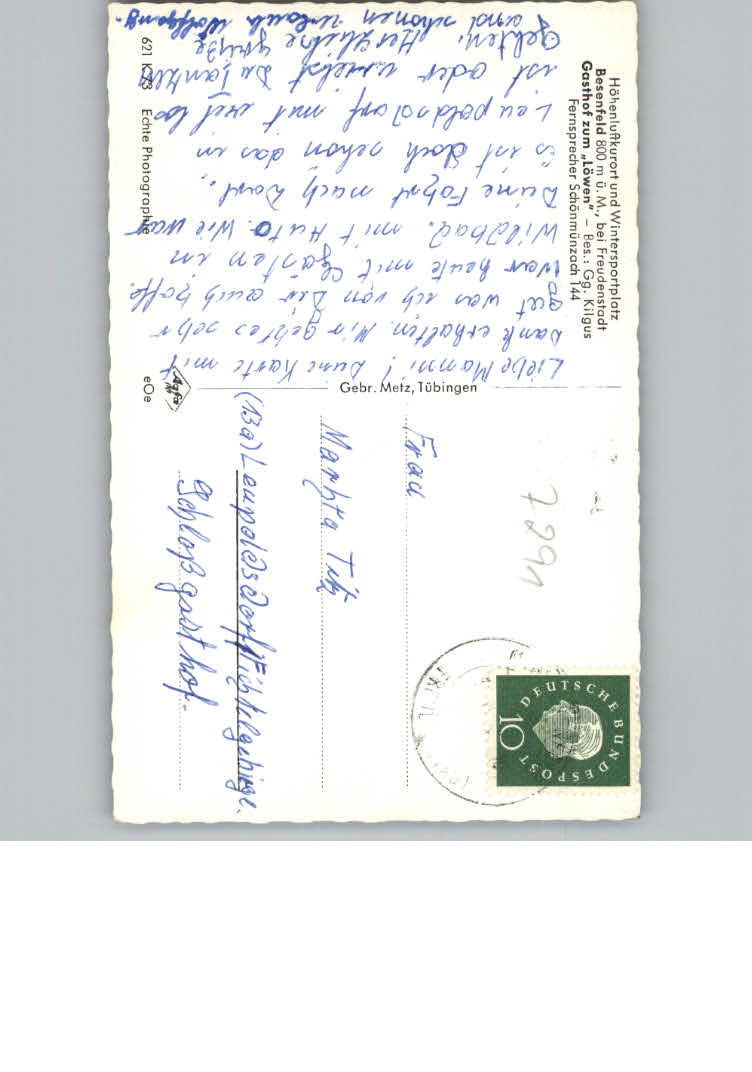 Höhenluftkurort und Wintersportplatz
Besenfeld 800 m ü. M., bei Freudenstadt
Gasthof zum „Löwen" – Bes.: Gg. Kilgus
Fernsprecher Schönmünzach 144
Liebe Mammi! Deine Karte mit
Dank erhalten. Mir geht es sehr
gut was ich von Dir auch hoffe.
War heute mit Gästen in
Wildbad. mit Auto. Wie war
Deine Fahrt nach dort.
Es ist doch schön das in
Leupoldsdorf mit viel los
ist oder willst Du tanzen
Gehten. Herzliche Grüße
und schönen Urlaub Wolfgang.
621 K 73 Echte Photographie
Agfa
eOe
Gebr. Metz, Tübingen
7891
DEUTSCHE BUNDESPOST
10
Frau
Martha Titz
(13a) Leupoldsdorf/Fichtelgebirge.
Schloßgasthof.